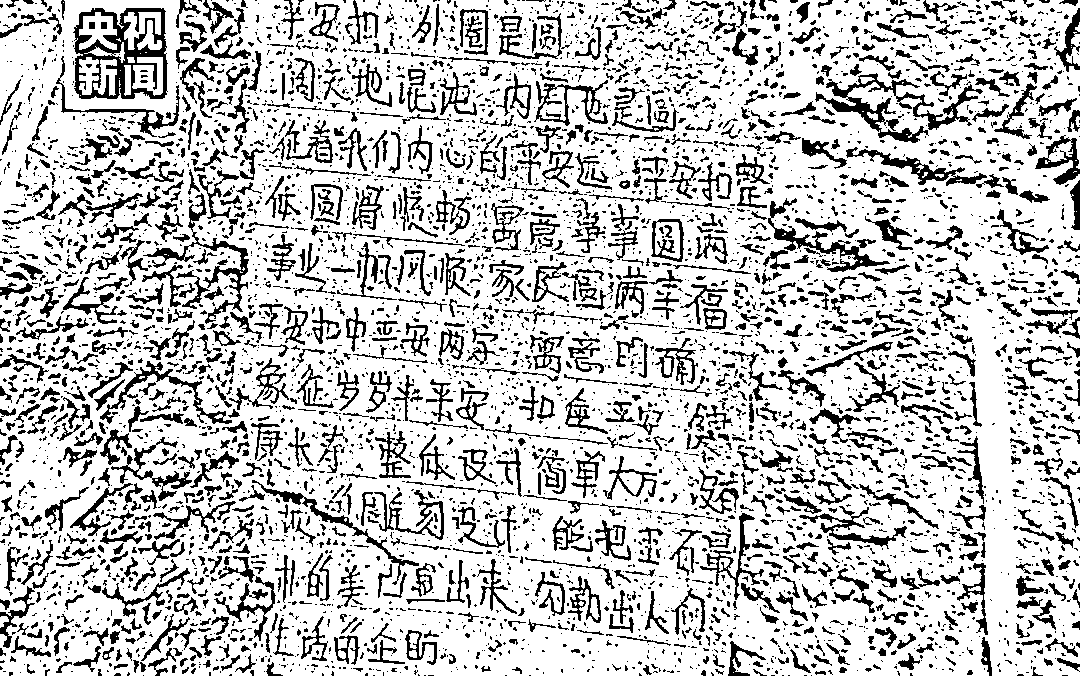 央视
新闻
平安扣 外圈是圆
阔天地混沌 内圈也是圆
征着我们内心的平安远。平安扣整
体圆滑顺畅 寓意事事圆满,
事业一帆风顺,家庭圆满幸福
平安扣中平安两字 寓意明确,
象征岁岁平安, 扣 平安 健
康长寿 整体设计简单大方,
雕刻设计 能把玉石最
的美凸显出来,勾勒出人们
的企盼。